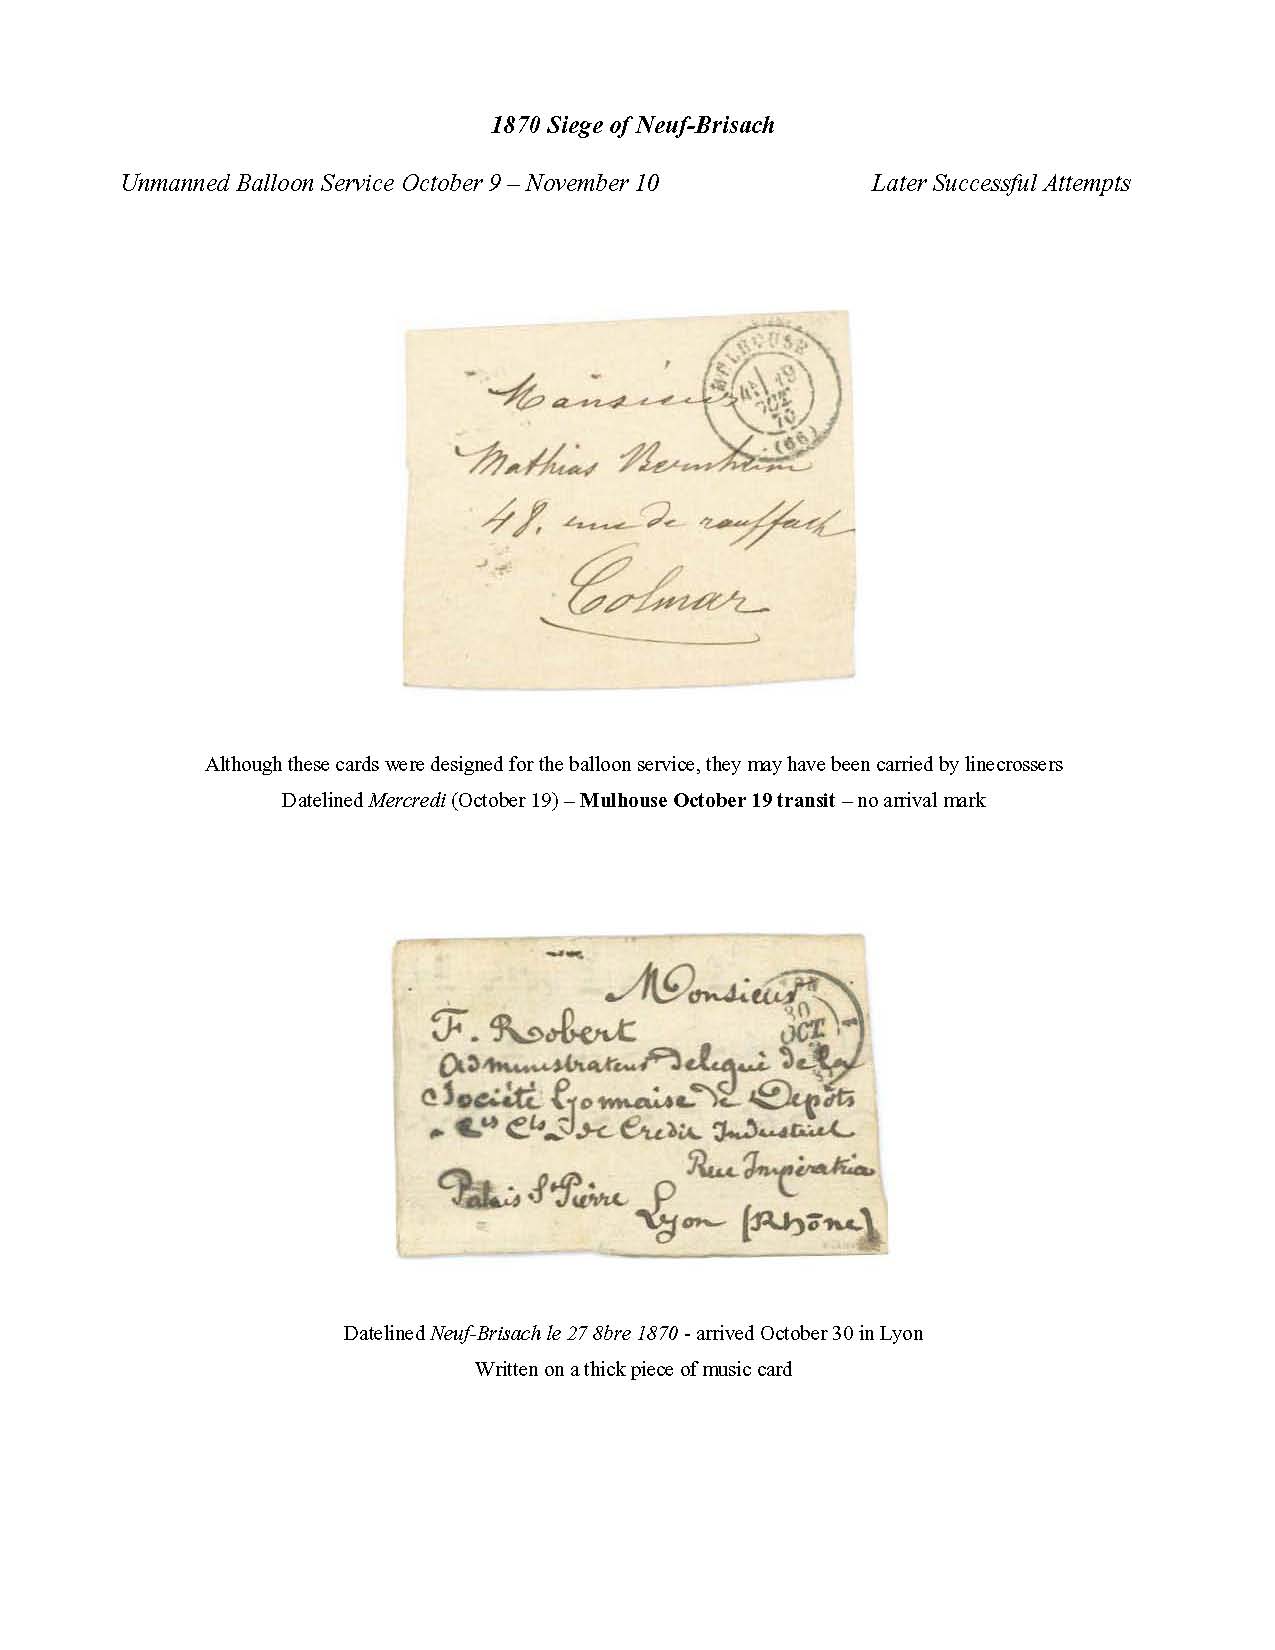 1870 Siege of Neuf-Brisach
Unmanned Balloon Service October 9 – November 10 Later Successful Attempts
MULHOUSE
19
OCT.
70
(66)
Monsieur
Mathias Bernheim
48. rue de rouffach
Colmar
Although these cards were designed for the balloon service, they may have been carried by linecrossers
Datelined Mercredi (October 19) – Mulhouse October 19 transit – no arrival mark
30
OCT.
Monsieur
F. Robert
Administrateur delegué de la
Société Lyonnaise de Depôts
de Credit Industriel
Rue Impératrice
Palais St Pierre
Lyon (Rhône)
Datelined Neuf-Brisach le 27 8bre 1870 - arrived October 30 in Lyon
Written on a thick piece of music card